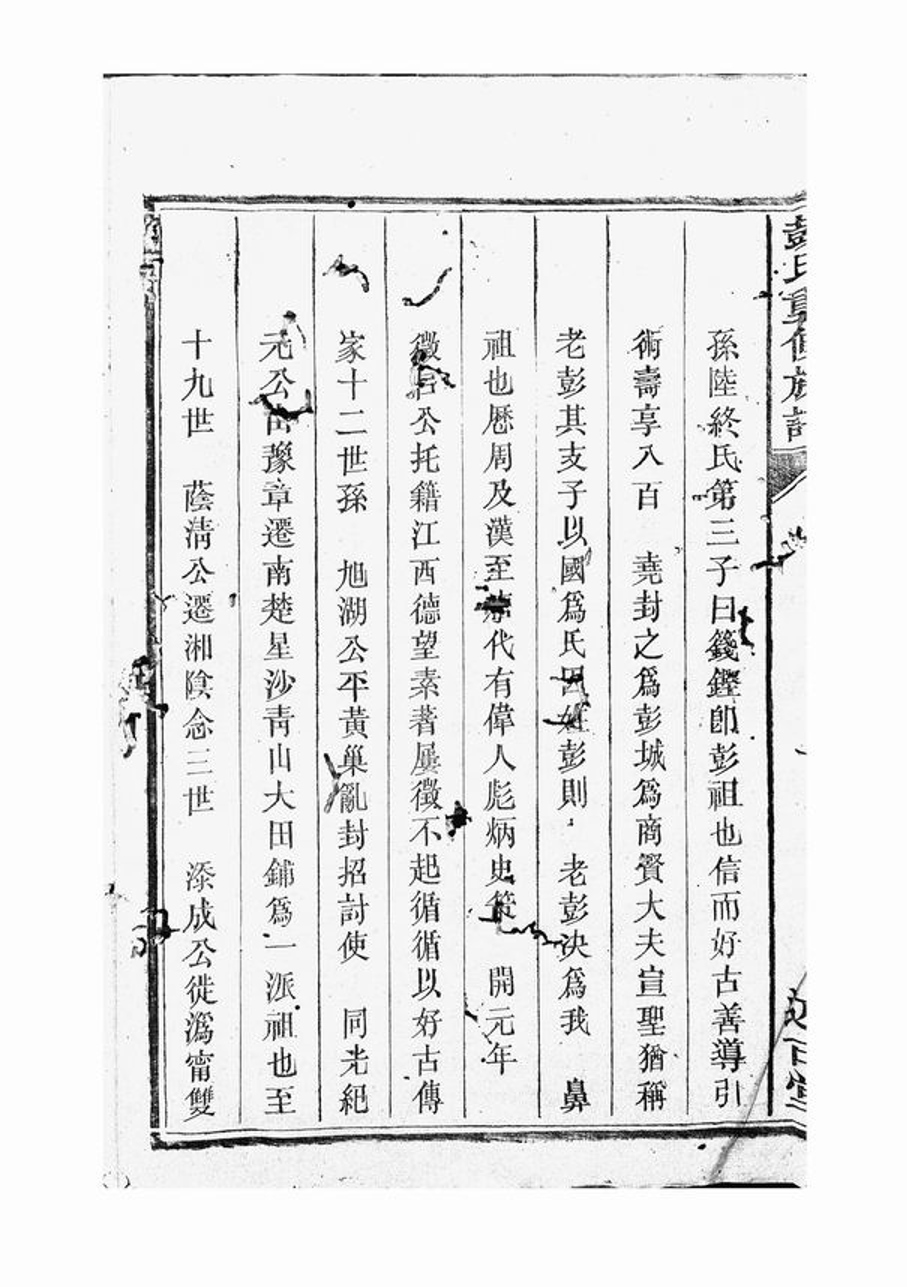 彭氏重修族譜
孫陸終氏第三子曰籛鏗卽彭祖也信而好古善導引
術壽享八百　堯封之爲彭城爲商賢大夫宣聖猶稱
老彭其支子以國爲氏因姓彭則　老彭決爲我　鼻
祖也歷周及漢至　代有偉人彪炳史策　開元年
徵君公托籍江西德望素著屢徵不起循循以好古傳
家十二世孫　旭湖公平黃巢亂封招討使　同光紀
元公由豫章遷南楚星沙靑山大田鋪爲一派祖也至
十九世　蔭淸公遷湘陰念三世　添成公徙潙甯雙